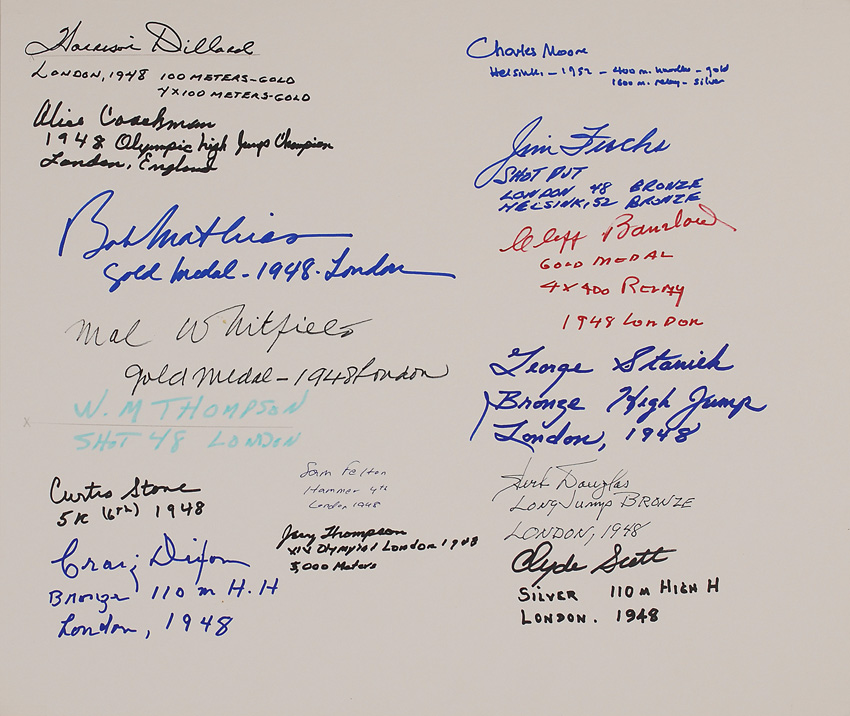 Harrison Dillard
LONDON, 1948 100 METERS-GOLD
4X100 METERS-GOLD
Alice Coachman
1948 Olympic high Jump Champion
London, England
Bob Mathias
Gold Medal - 1948 - London
Mal Whitfield
gold medal - 1948 London
W. M THOMPSON
SHOT 48 LONDON
Curtis Stone
5K (6th) 1948
Craig Dixon
Bronze 110 m H.H
London, 1948
Sam Felton
Hammer 4th
London 1948
Jerry Thompson
XIV Olympiad London 1948
5,000 Meters
Charles Moore
Helsinki - 1952 - 400 m. hurdles - gold
1600 m. relay - silver
Jim Fuchs
SHOT PUT
LONDON 48 BRONZE
HELSINKI, 52 BRONZE
Cliff Bourland
GOLD MEDAL
4X400 RELAY
1948 LONDON
George Stanich
Bronze High Jump
London, 1948
Herb Douglas
LONG Jump BRONZE
LONDON, 1948
Clyde Scott
SILVER 110 M HIGH H
LONDON. 1948